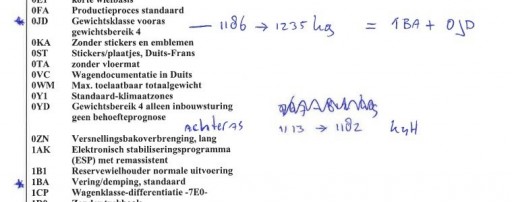 0FA Productieproces standaard
0JD Gewichtsklasse vooras — 1186 → 1235 kg = 1BA + 0JD
gewichtsbereik 4
0KA Zonder stickers en emblemen
0ST Stickers/plaatjes, Duits-Frans
0TA zonder vloermat
0VC Wagendocumentatie in Duits
0WM Max. toelaatbaar totaalgewicht
0Y1 Standaard-klimaatzones
0YD Gewichtsbereik 4 alleen inbouwsturing
geen behoefteprognose
Achteras 1113 → 1182
0ZN Versnellingsbakoverbrenging, lang
1AK Elektronisch stabiliseringsprogramma
(ESP) met remassistent
1B1 Reservewielhouder normale uitvoering
1BA Vering/demping, standaard
1CP Wagenklasse-differentiatie -7E0-